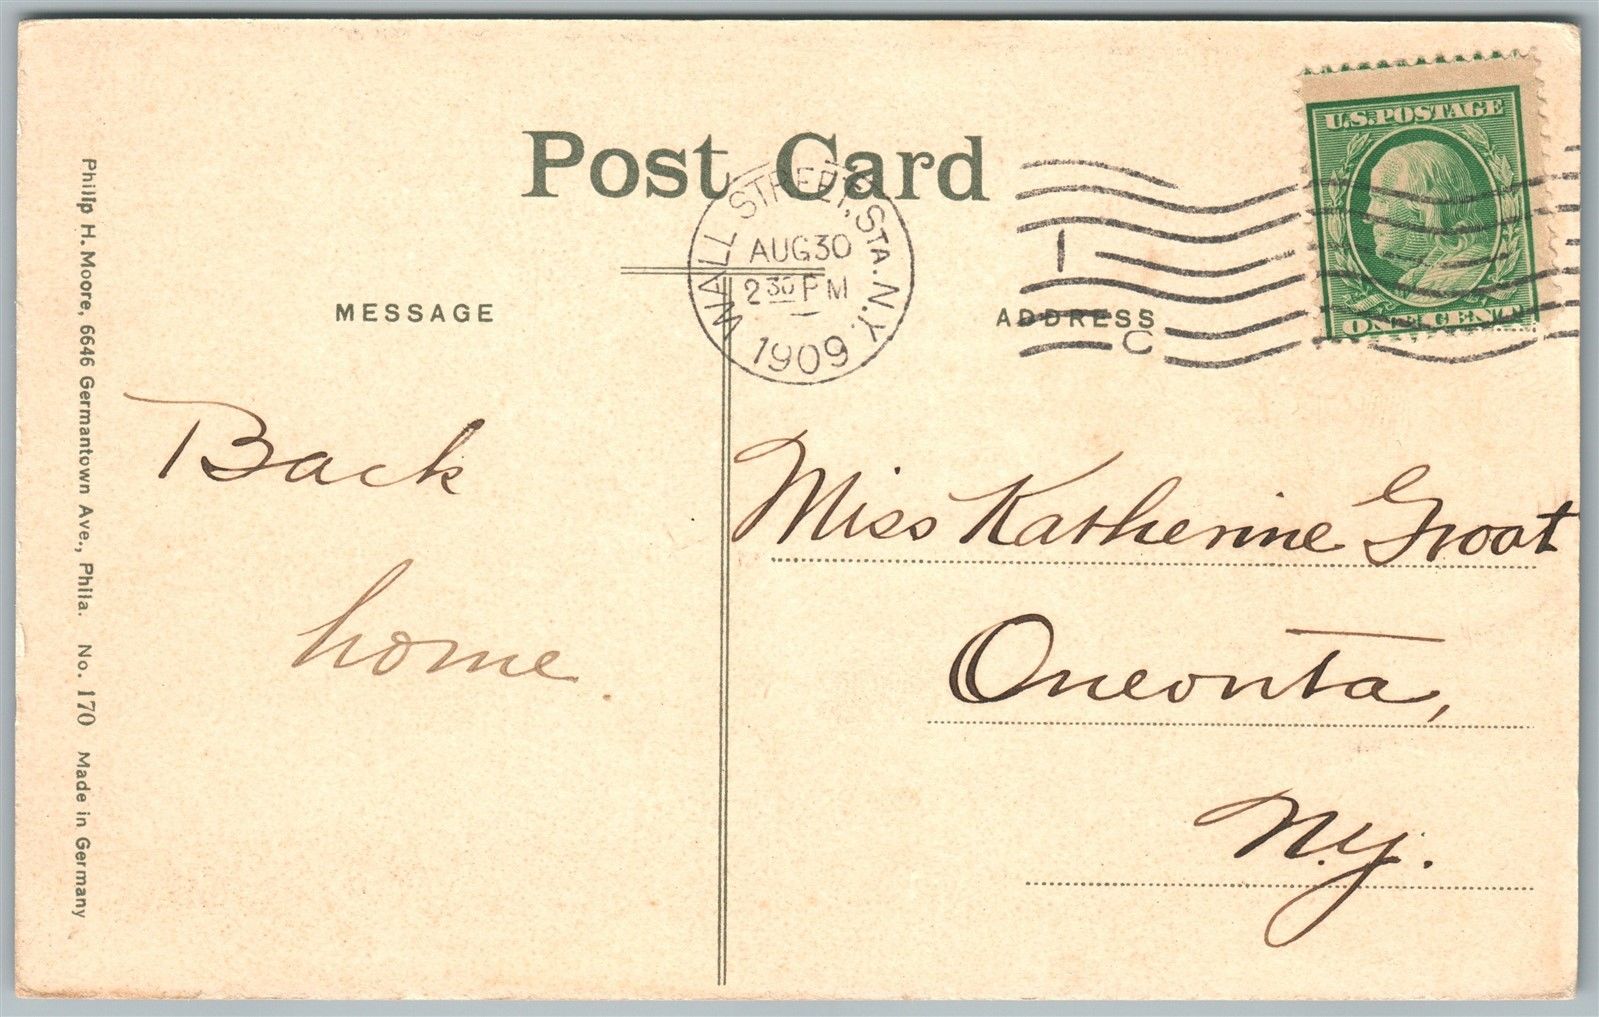 Post Card
U.S. POSTAGE
ONE CENT
WALL STREET, STA. N.Y.
AUG 30
2 30 PM
1909
1
C
MESSAGE
ADDRESS
Back
home.
Miss Katherine Groat
Oneonta,
N.y.
Philip H. Moore, 6646 Germantown Ave., Phila. No. 170 Made in Germany